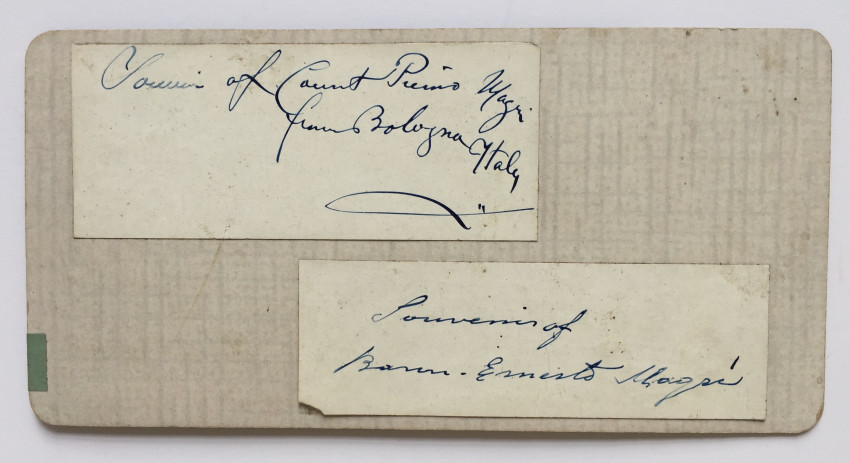 Souvenir of Count Primo Magri
from Bologna
Italy
Souvenir of
Baron - Ernesto Magri